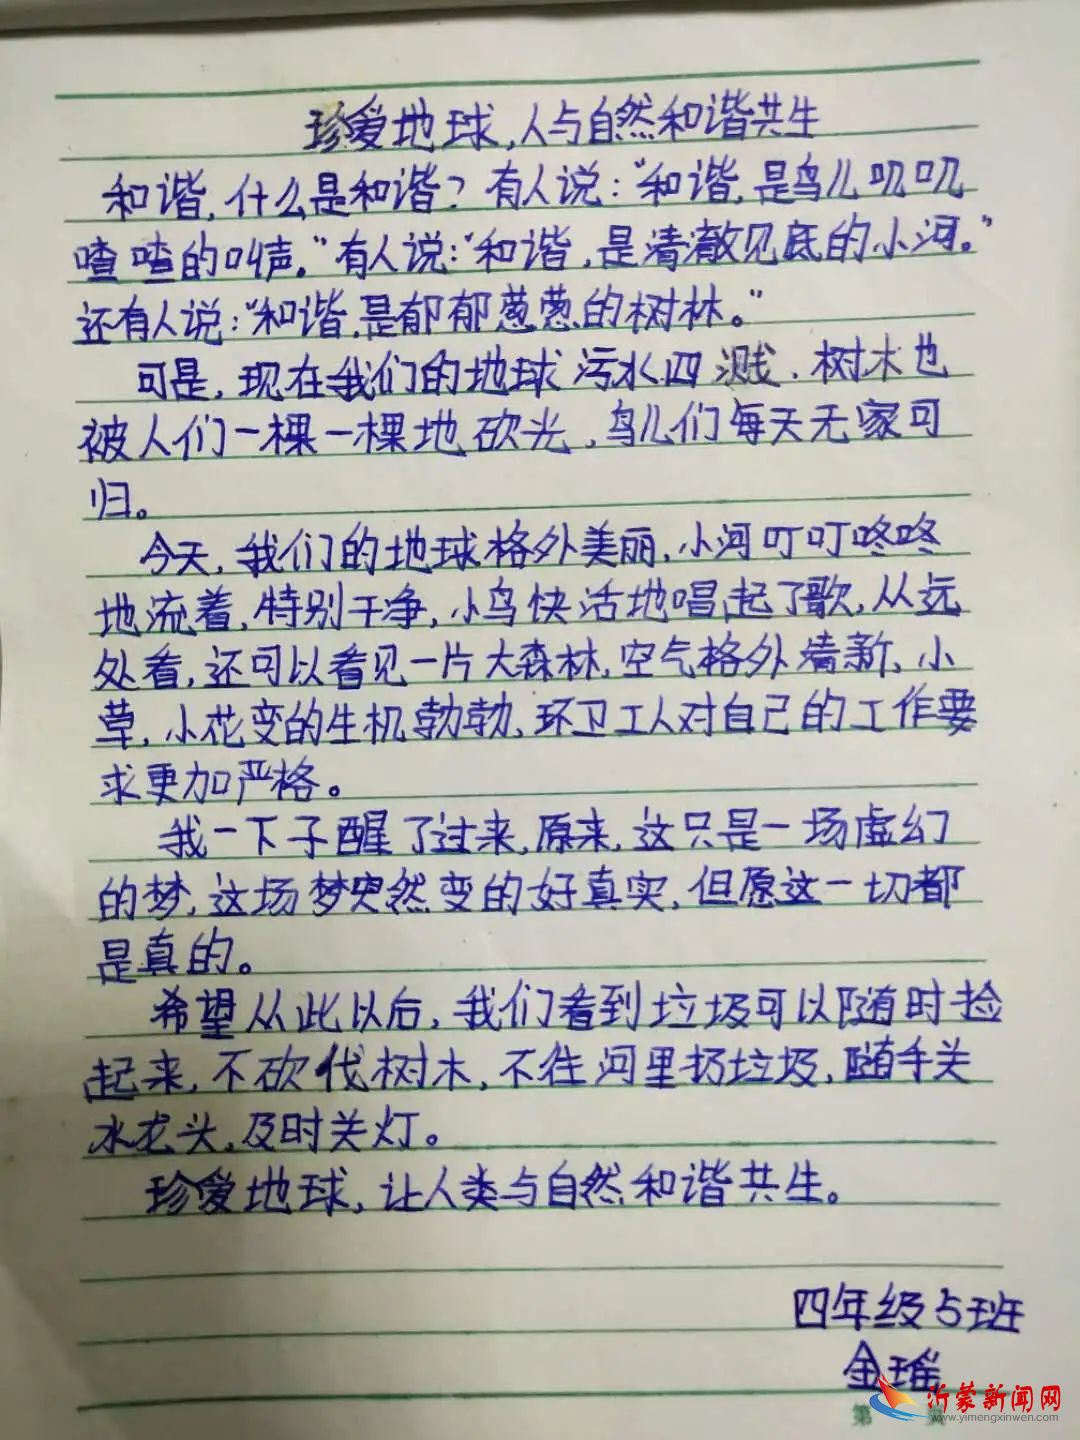 珍爱地球,人与自然和谐共生
和谐,什么是和谐?有人说:“和谐,是鸟儿叽叽
喳喳的叫声。”有人说:“和谐,是清澈见底的小河。”
还有人说:“和谐,是郁郁葱葱的树林。”
可是,现在我们的地球污水四溅,树木也
被人们一棵一棵地砍光,鸟儿们每天无家可
归。
今天,我们的地球格外美丽,小河叮叮咚咚
地流着,特别干净,小鸟快活地唱起了歌,从远
处看,还可以看见一片大森林,空气格外清新,小
草,小花变的生机勃勃,环卫工人对自己的工作要
求更加严格。
我一下子醒了过来,原来,这只是一场虚幻
的梦,这场梦突然变的好真实,但愿这一切都
是真的。
希望从此以后,我们看到垃圾可以随时捡
起来,不砍伐树木,不往河里扔垃圾,随手关
水龙头,及时关灯。
珍爱地球,让人类与自然和谐共生。
四年级5班
金瑶
沂蒙新闻网
www.yimengxinwen.com
第 页